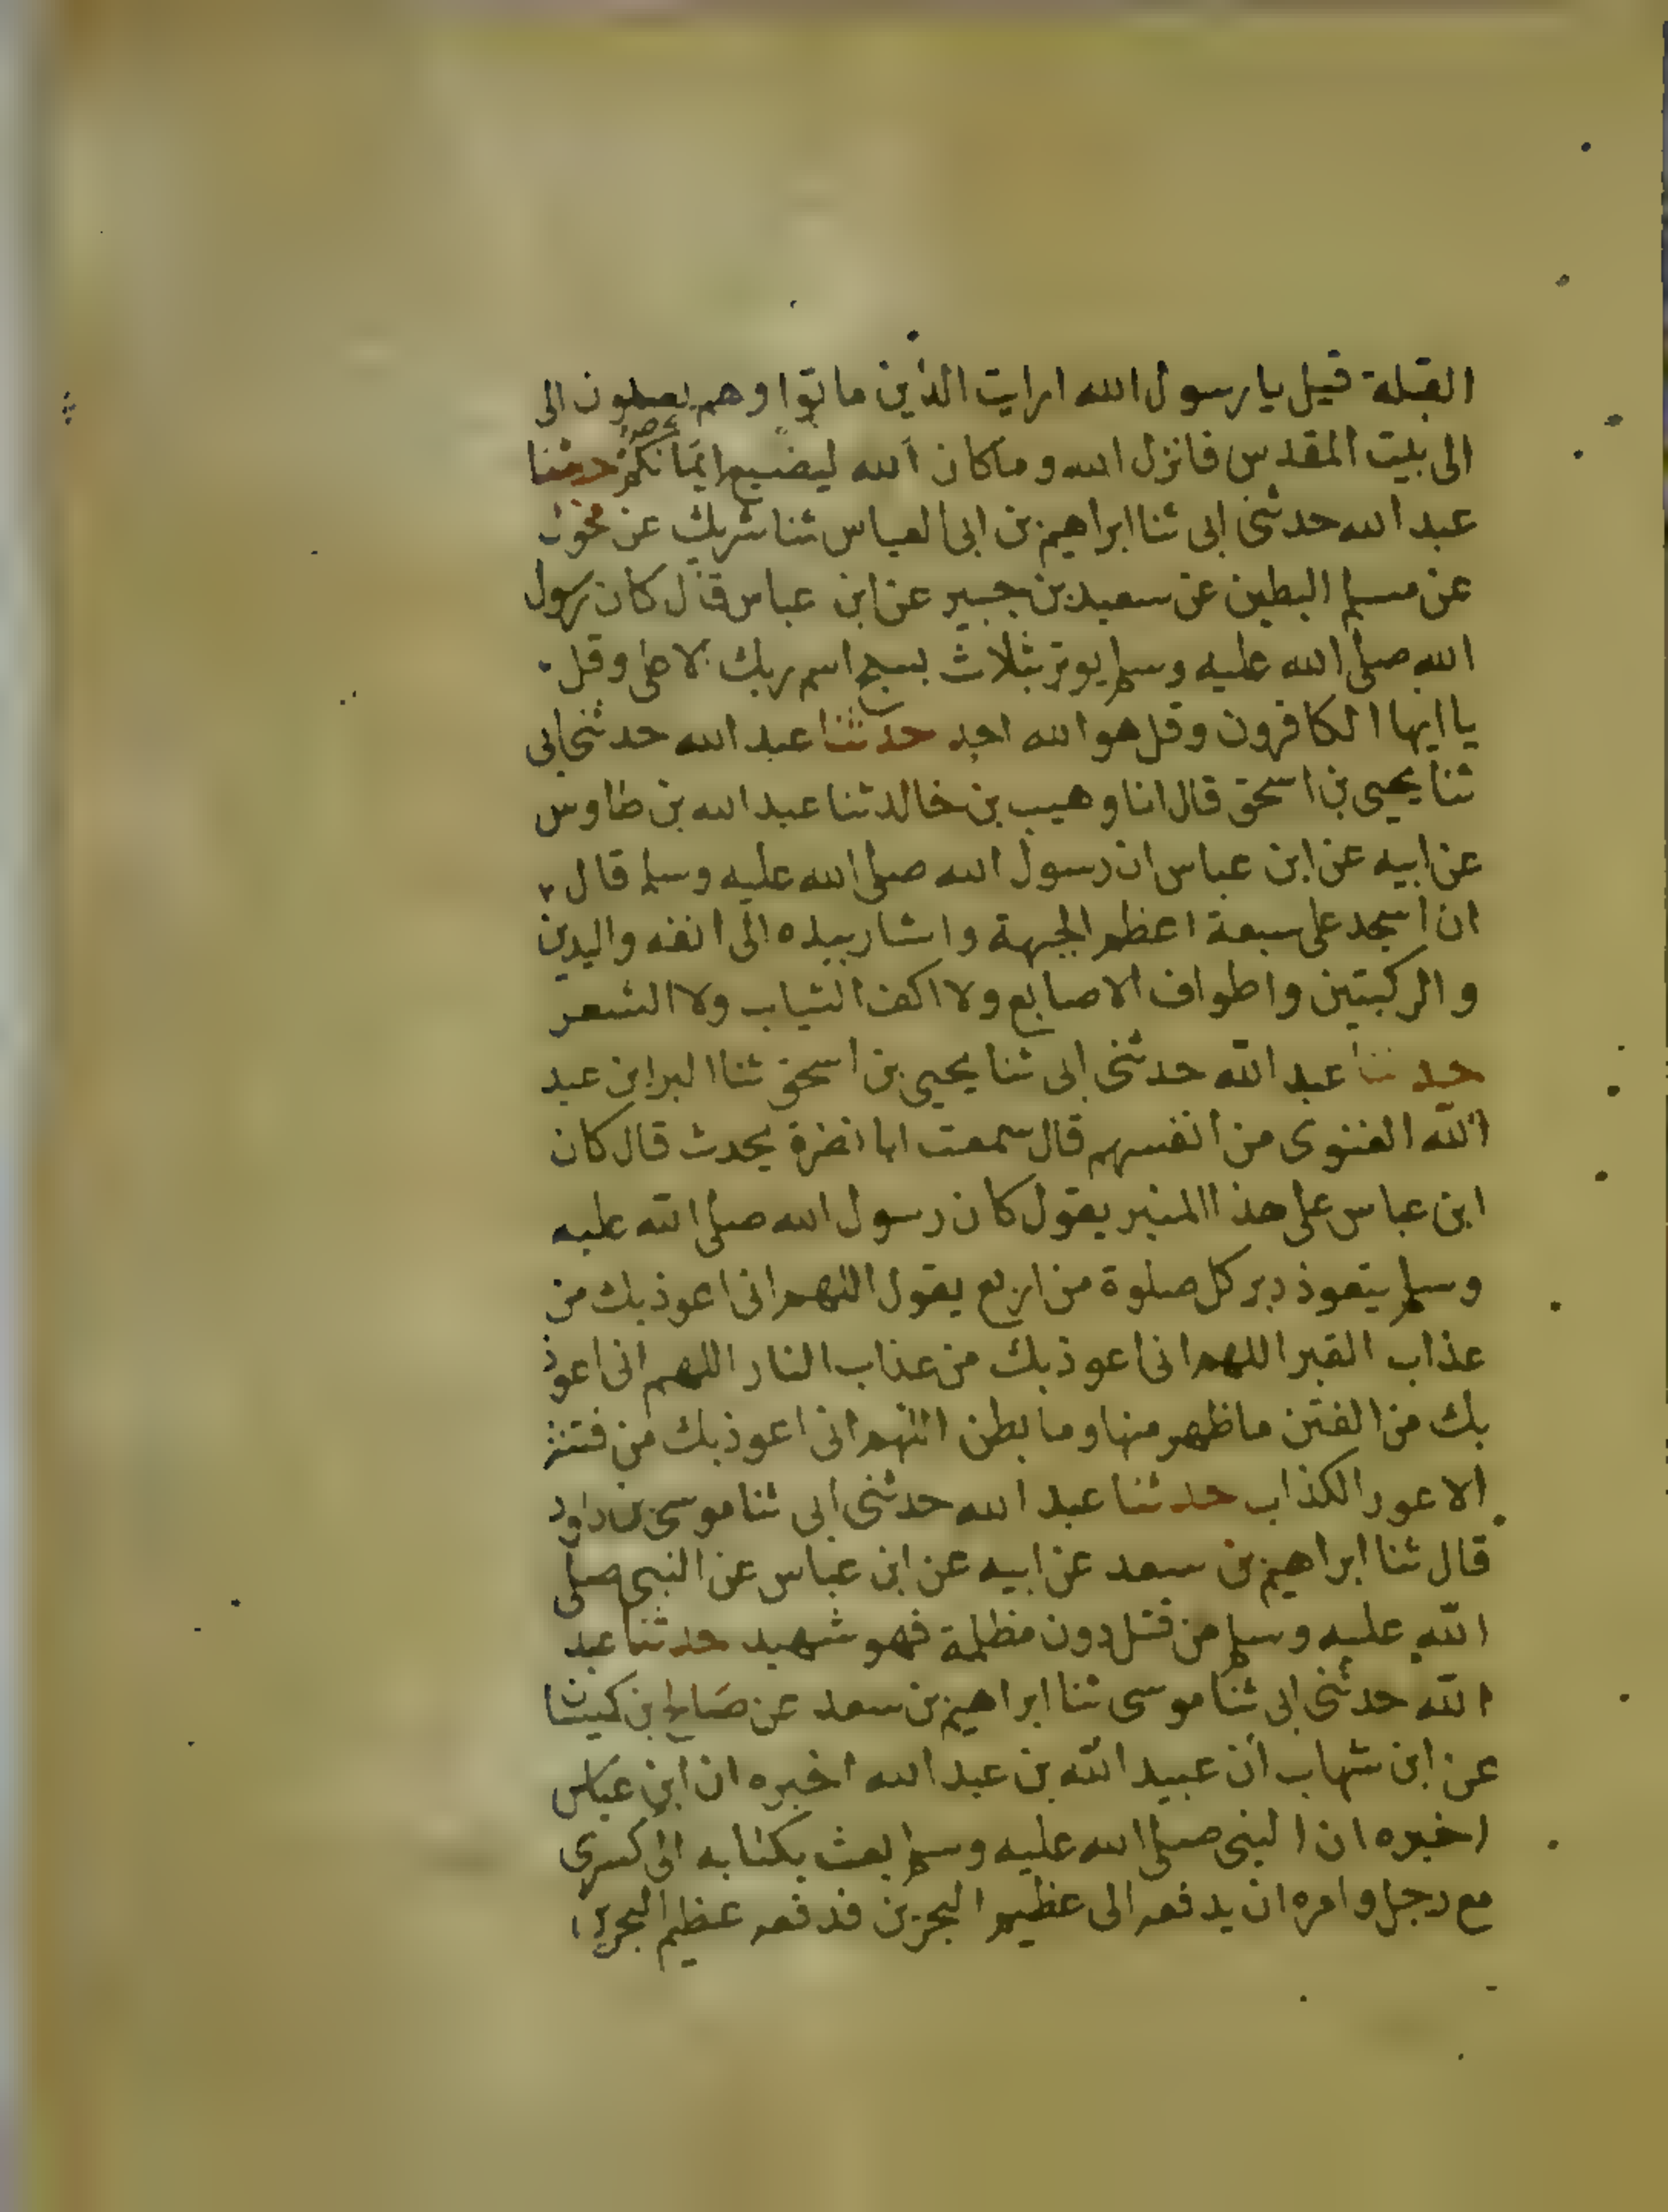 القبلة قيل يا رسول الله ارايت الذين ماتوا وهم يصلون الى
الى بيت المقدس فانزل الله وما كان الله ليضيع ايمانكم حدثنا
عبد الله حدثنى ابى ثنا ابراهيم بن ابى العباس ثنا شريك عن مخول
عن مسلم البطين عن سعيد بن جبير عن ابن عباس قال كان رسول
الله صلى الله عليه وسلم يوتر بثلاث بسبح اسم ربك الاعلى وقل
يا ايها الكافرون وقل هو الله احد حدثنا عبد الله حدثنى ابى
ثنا يحيى بن اسحق قال انا وهيب بن خالد ثنا عبد الله بن طاوس
عن ابيه عن ابن عباس ان رسول الله صلى الله عليه وسلم قال
ان اسجد على سبعة اعظم الجبهة واشار بيده الى انفه واليدين
والركبتين واطواف الاصابع ولا اكف الثياب ولا الشعر
حدثنا عبد الله حدثنى ابى ثنا يحيى بن اسحق ثنا البرا بن عبد
الله الغنوى من انفسهم قال سمعت ابا نضرة يحدث قال كان
ابن عباس على هذا المنبر يقول كان رسول الله صلى الله عليه
وسلم يتعوذ دبر كل صلوة من اربع يقول اللهم انى اعوذ بك من
عذاب القبر اللهم انى اعوذ بك من عذاب النار اللهم انى اعوذ
بك من الفتن ما ظهر منها وما بطن اللهم انى اعوذ بك من فتنة
الاعور الكذاب حدثنا عبد الله حدثنى ابى ثنا موسى بن داود
قال ثنا ابراهيم بن سعد عن ابيه عن ابن عباس عن النبى صلى
الله عليه وسلم من قتل دون مظلمة فهو شهيد حدثنا عبد
الله حدثنى ابى ثنا موسى ثنا ابراهيم بن سعد عن صالح بن كيسان
عن ابن شهاب ان عبيد الله بن عبد الله اخبره ان ابن عباس
اخبره ان النبى صلى الله عليه وسلم بعث بكتابه الى كسرى
مع رجل وامره ان يدفعه الى عظيم البحرين فدفعه عظيم البحرين